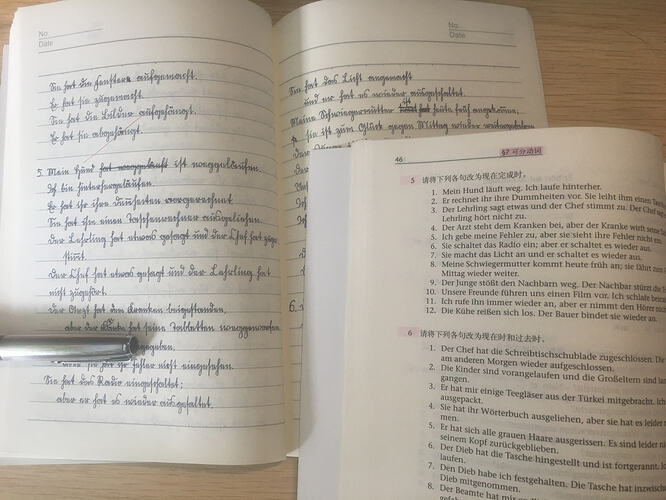 No.
Date
Sie hat die Fenster aufgemacht.
Er hat sie zugemacht.
Sie hat die Bilder aufgehängt.
Er hat sie abgehängt.
5. Mein Hund hat ist weggelaufen.
Ich bin hintergelaufen.
Er hat ihr ihre Dummheiten vorgerechnet.
Sie hat ihm einen Taschenrechner ausgeliehen.
Der Lehrling hat etwas gesagt und der Chef hat zuge
stimmt.
Der Chef hat etwas gesagt und der Lehrling hat
nicht zugehört.
Der Arzt hat dem Kranken beigestanden,
aber der Kranke hat seine Tabletten weggeworfen.
gegeben,
hat ihr Fehler nicht eingesehen.
Sie hat das Radio eingeschaltet;
aber er hat es wieder
No.
Date
Sie hat das Licht angemacht
und er hat es wieder ausgeschaltet.
Meine Schwiegermutter ist heute früh angekommen,
sie ist zum Glück gegen Mittag wieder
6.
46 §7 可分动词
5 请将下列各句改为现在完成时。
1. Mein Hund läuft weg. Ich laufe hinterher.
2. Er rechnet ihr ihre Dummheiten vor. Sie leiht ihm einen
3. Der Lehrling sagt etwas und der Chef stimmt zu. Der Chef
Lehrling hört nicht zu.
4. Der Arzt steht dem Kranken bei, aber der Kranke wirft seine
5. Ich gebe meine Fehler zu, aber sie sieht ihre Fehler nicht ein.
6. Sie schaltet das Radio ein; aber er schaltet es wieder aus.
7. Sie macht das Licht an und er schaltet es wieder aus.
8. Meine Schwiegermutter kommt heute früh an; sie fährt zum
Mittag wieder weiter.
9. Der Junge stößt den Nachbarn weg. Der Nachbar stürzt die
10. Unsere Freunde führen uns einen Film vor. Ich schlafe
11. Ich rufe ihn immer wieder an, aber er nimmt den Hörer nicht
12. Die Kühe reißen sich los. Der Bauer bindet sie wieder an.
6 请将下列各句改为现在时和过去时。
1. Der Chef hat die Schreibtischschublade zugeschlossen. Die
am anderen Morgen wieder aufgeschlossen.
2. Die Kinder sind vorangelaufen und die Großeltern sind
gangen.
3. Er hat mir einige Teegläser aus der Türkei mitgebracht. Ich
ausgepackt.
4. Sie hat ihr Wörterbuch ausgeliehen, aber sie hat es leider
men.
5. Er hat sich alle grauen Haare ausgerissen. Es sind leider
seinem Kopf zurückgeblieben.
6. Der Dieb hat die Tasche hingestellt und ist fortgerannt.
laufen.
7. Den Dieb habe ich festgehalten. Die Tasche hat inzwischen
Dieb mitgenommen.
8. Der Beamte hat mir